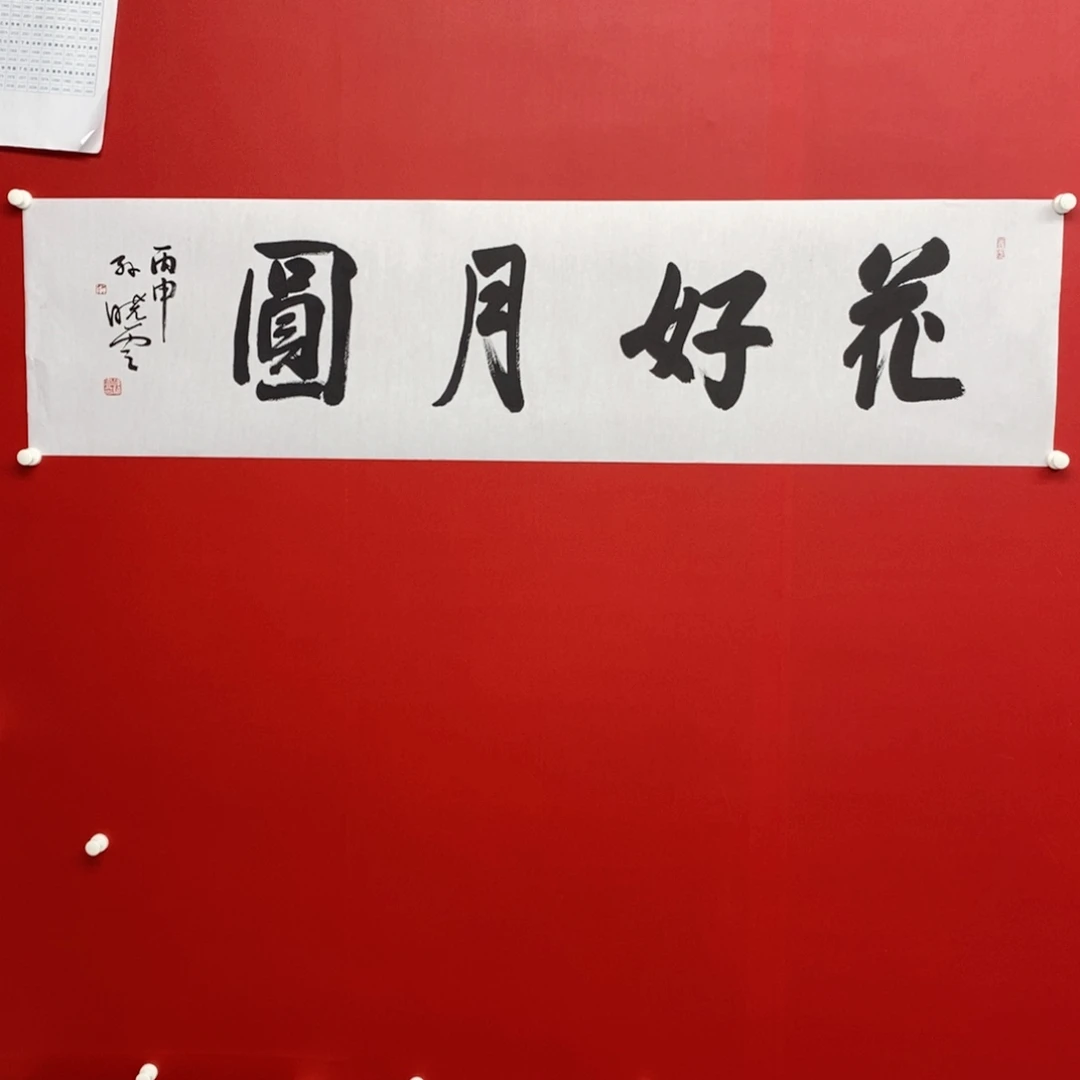 花好月圓
丙申
孙晓云